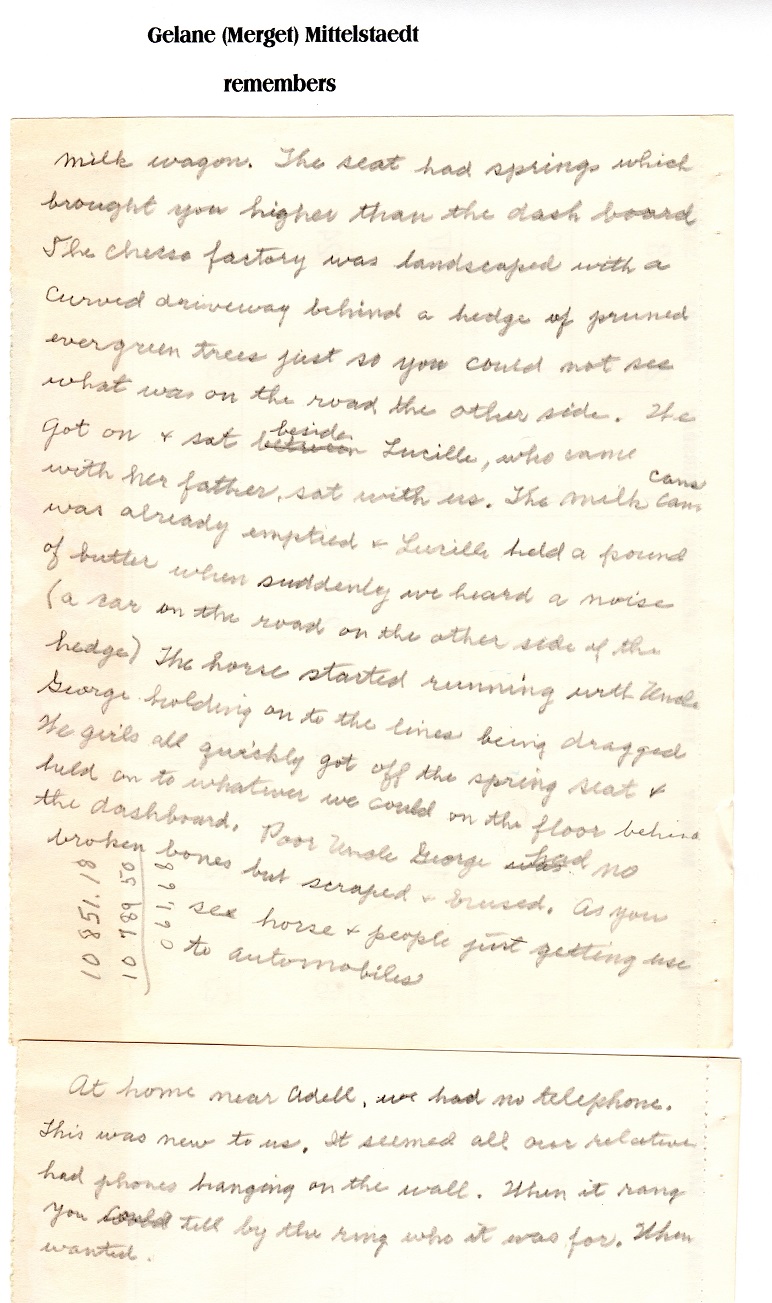 Gelane (Merget) Mittelstaedt
remembers
milk wagon. The seat had springs which
brought you higher than the dash board
The cheese factory was landscaped with a
curved driveway behind a hedge of pruned
evergreen trees just so you could not see
what was on the road the other side. We
got on & sat between beside Lucille, who came
with her father, sat with us. The milk cans cans
was already emptied & Lucille held a pound
of butter when suddenly we heard a noise
(a car on the road on the other side of the
hedge) The horse started running with Uncle
George holding on to the lines being dragged
We girls all quickly got off the spring seat &
held on to whatever we could on the floor behind
the dashboard. Poor Uncle George was had no
broken bones but scraped & brused. As you
see horse & people just getting use
to automobiles
10 851.18
10 789 50
061.68
At home near Adell, we had no telephone.
This was new to us. It seemed all our relatives
had phones hanging on the wall. When it rang
you could tell by the ring who it was for. When
wanted.